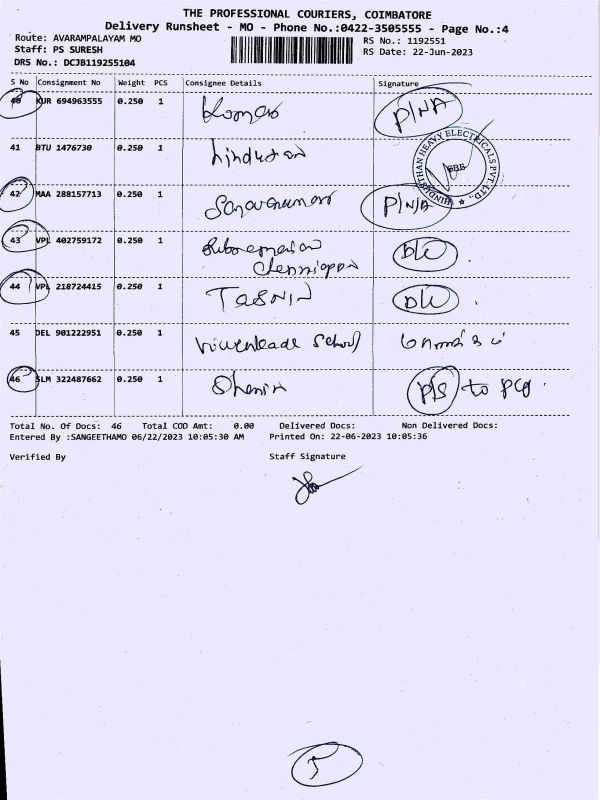 THE PROFESSIONAL COURIERS, COIMBATORE
Delivery Runsheet - MO - Phone No.:0422-3505555 - Page No.:4
Route: AVARAMPALAYAM MO
RS No.: 1192551
Staff: PS SURESH
RS Date: 22-Jun-2023
DRS No.: DCJB119255104
S No Consignment No Weight PCS Consignee Details Signature
40 KUR 694963555 0.250 1 P/NA
41 BTU 1476730 0.250 1 hindustan
HINDUSTHAN HEAVY ELECTRICALS PVT. LTD.,
42 MAA 288157713 0.250 1 P/N/A
43 VPL 402759172 0.250 1 D/L
44 VPL 218724415 0.250 1 TASNIN D/L
45 DEL 901222951 0.250 1 School
46 SLM 322487662 0.250 1 P/S to
Total No. Of Docs: 46 Total COD Amt: 0.00 Delivered Docs: Non Delivered Docs:
Entered By :SANGEETHAMO 06/22/2023 10:05:30 AM Printed On: 22-06-2023 10:05:36
Verified By Staff Signature
5